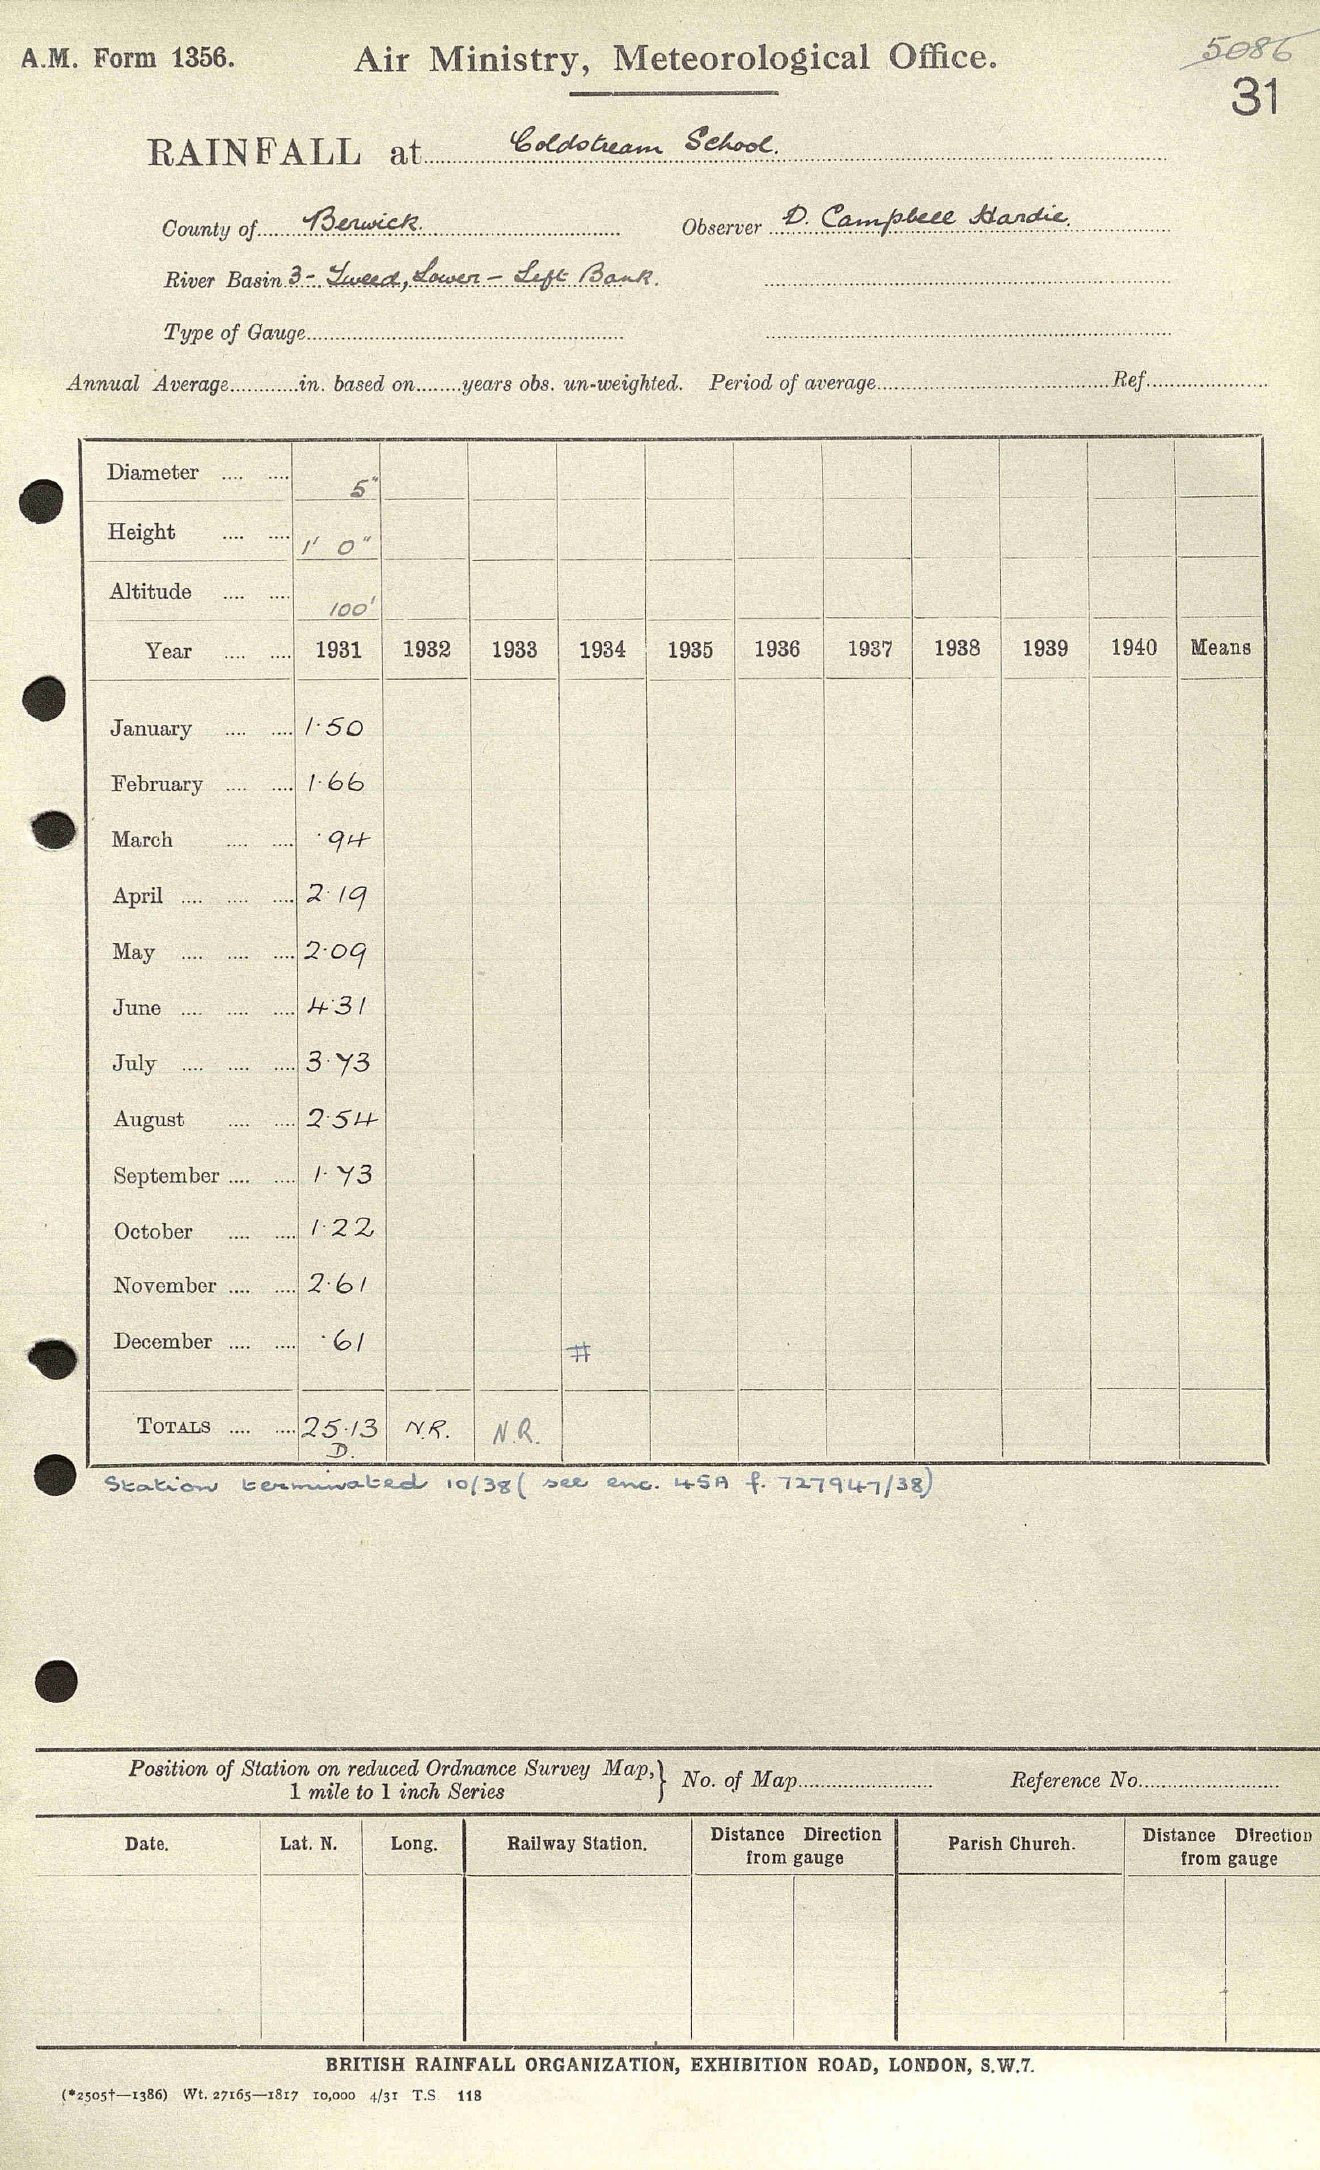 A.M. Form 1356. Air Ministry, Meteorological Office. 5086
31
RAINFALL at Coldstream School.
County of Berwick. Observer D. Campbell Hardie.
River Basin 3- Tweed, Lower - Left Bank.
Type of Gauge
Annual Average in. based on years obs. un-weighted. Period of average Ref
Diameter 5"
Height 1' 0"
Altitude 100'
Year 1931 1932 1933 1934 1935 1936 1937 1938 1939 1940 Means
January 1·50
February 1·66
March ·94
April 2·19
May 2·09
June 4·31
July 3·73
August 2·54
September 1·73
October 1·22
November 2·61
December ·61 #
TOTALS 25·13 N.R. N.R.
D.
Station terminated 10/38 (see enc. 45A f. 727947/38)
Position of Station on reduced Ordnance Survey Map, } No. of Map Reference No
1 mile to 1 inch Series
Date. Lat. N. Long. Railway Station. Distance Direction from gauge Parish Church. Distance Direction from gauge
BRITISH RAINFALL ORGANIZATION, EXHIBITION ROAD, LONDON, S.W.7.
(*2505†—1386) Wt. 27165—1817 10,000 4/31 T.S 118